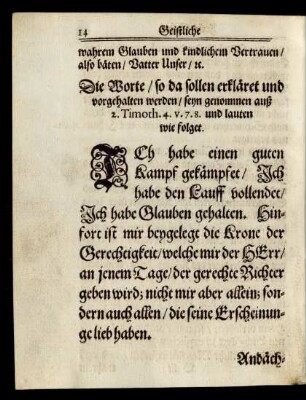 14 Geistliche
wahrem Glauben und kindlichem Vertrauen/
also bäten/ Vatter Unser/ ꝛc.
Die Worte/ so da sollen erkläret und
vorgehalten werden/ seyn genommen auß
2. Timoth. 4. v. 7. 8. und lauten
wie folget.
ICh habe einen guten
Kampf gekämpfet/ Ich
habe den Lauff vollendet/
Ich habe Glauben gehalten. Hin-
fort ist mir beygelegt die Krone der
Gerechtigkeit/ welche mir der HErr/
an jenem Tage/ der gerechte Richter
geben wird; nicht mir aber allein; son-
dern auch allen/ die seine Erscheinun-
ge lieb haben.
Andäch-